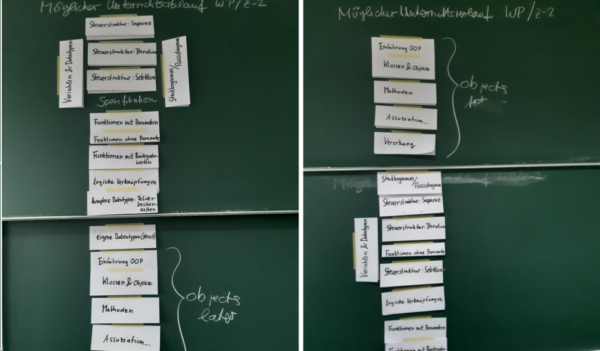 Möglicher Unterrichtsablauf WP/Z-2
Steuerstruktur: Sequenz
Steuerstruktur: Iteration
Steuerstruktur: Selektion
Variablen & Datentypen
Struktogramm/
Flussdiagramm
Funktionen mit Parametern
Funktionen ohne Parameter
Funktionen mit Rückgabe-
werten
logische Verknüpfungen
komplexe Datentypen: Felder
Zeichen
ketten
eigene Datentypen (struct)
Einführung OOP
Klassen & Objekte
Methoden
Assoziation...
objects
later
Möglicher Unterrichtsablauf WP/Z-2
Einführung OOP
Klassen & Objekte
Methoden
Assoziation...
Vererbung
objects
first
Struktogramm/
Flussdiagramm
Steuerstruktur: Sequenz
Variablen & Datentypen
Steuerstruktur: Iteration
Funktionen ohne Parameter
Steuerstruktur: Selektion
logische Verknüpfungen
Funktionen mit Parametern
Funktionen mit Rückgabe-